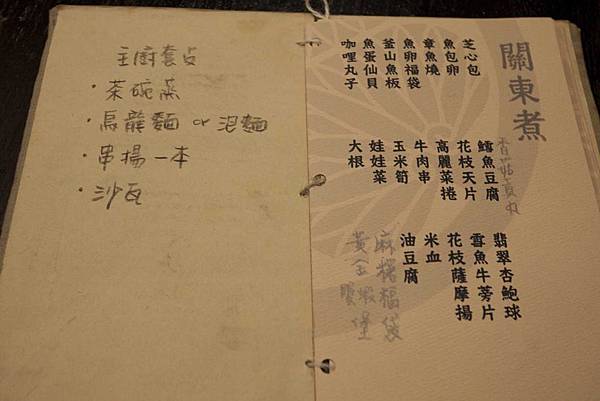 主廚套点
・茶碗蒸
・烏龍麵 or 泡麵
・串揚一本
・沙瓦
關東煮
芝心包
魚包卵
章魚燒
魚卵福袋
釜山魚板
魚蛋仙貝
咖哩丸子
香菇貢丸
鱈魚豆腐
花枝天片
高麗菜捲
牛肉串
玉米筍
娃娃菜
大根
翡翠杏鮑球
雪魚牛蒡片
花枝薩摩揚
米血
油豆腐
麻糬福袋
黃金蝦堡